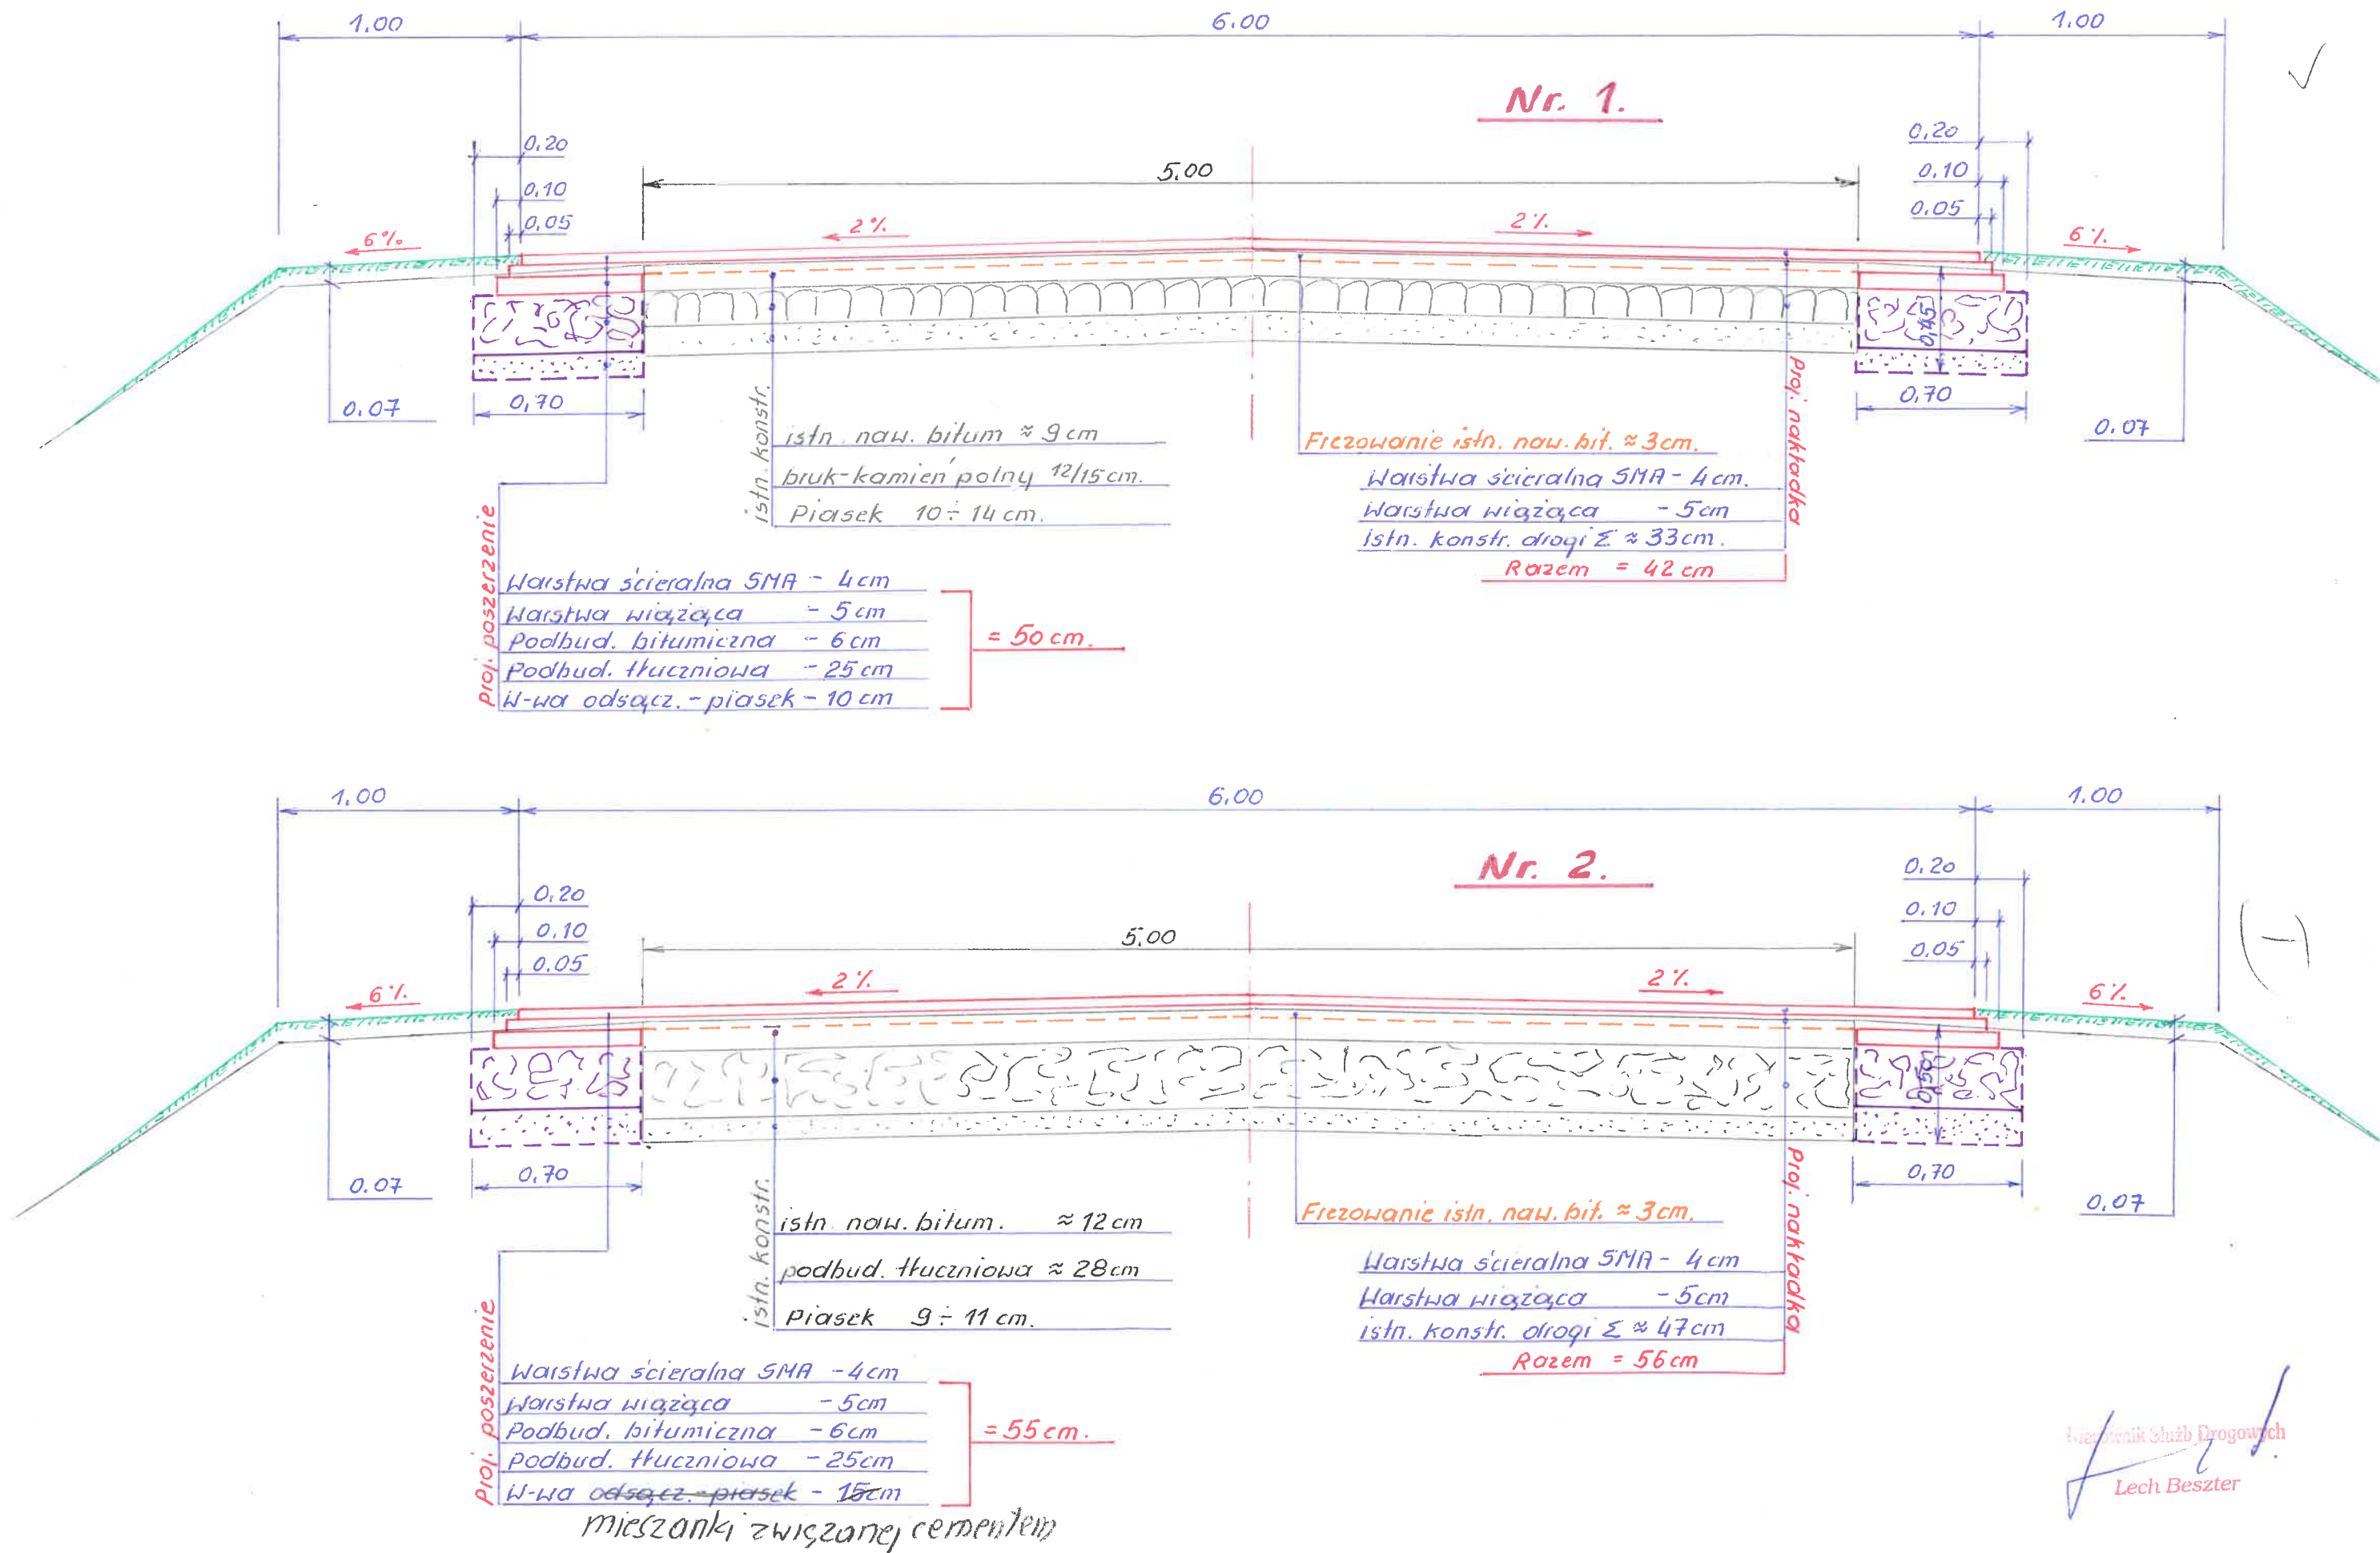 1.00
6.00
1.00
Nr. 1.
0,20
0,10
0,05
5,00
0,20
0,10
0,05
6%
2%
2%
6%
0,45
0.07
0,70
0,70
0.07
istn. konstr.
istn. naw. bitum ≈ 9 cm
bruk-kamień polny 12/15 cm.
Piasek 10 ÷ 14 cm.
Frezowanie istn. naw. bit. ≈ 3 cm.
Warstwa ścieralna SMA - 4 cm.
Warstwa wiążąca - 5 cm
istn. konstr. drogi Σ ≈ 33 cm.
Razem = 42 cm
Proj. nakładka
Proj. poszerzenie
Warstwa ścieralna SMA - 4 cm
Warstwa wiążąca - 5 cm
Podbud. bitumiczna - 6 cm
Podbud. tłuczniowa - 25 cm
W-wa odsącz. - piasek - 10 cm
= 50 cm.
1.00
6.00
1.00
Nr. 2.
0,20
0,10
0.05
5,00
0,20
0,10
0,05
6%
2%
2%
6%
0,50
0.07
0,70
0,70
0,07
istn. konstr.
istn. naw. bitum. ≈ 12 cm
podbud. tłuczniowa ≈ 28 cm
Piasek 9 ÷ 11 cm.
Frezowanie istn. naw. bit. ≈ 3 cm.
Warstwa ścieralna SMA - 4 cm
Warstwa wiążąca - 5 cm
istn. konstr. drogi Σ ≈ 47 cm
Razem = 56 cm
Proj. nakładka
Proj. poszerzenie
Warstwa ścieralna SMA - 4 cm
Warstwa wiążąca - 5 cm
Podbud. bitumiczna - 6 cm
Podbud. tłuczniowa - 25 cm
W-wa odsącz. - piasek - 15 cm
mieszanki związanej cementem
= 55 cm.
Kierownik Służb Drogowych
Lech Beszter